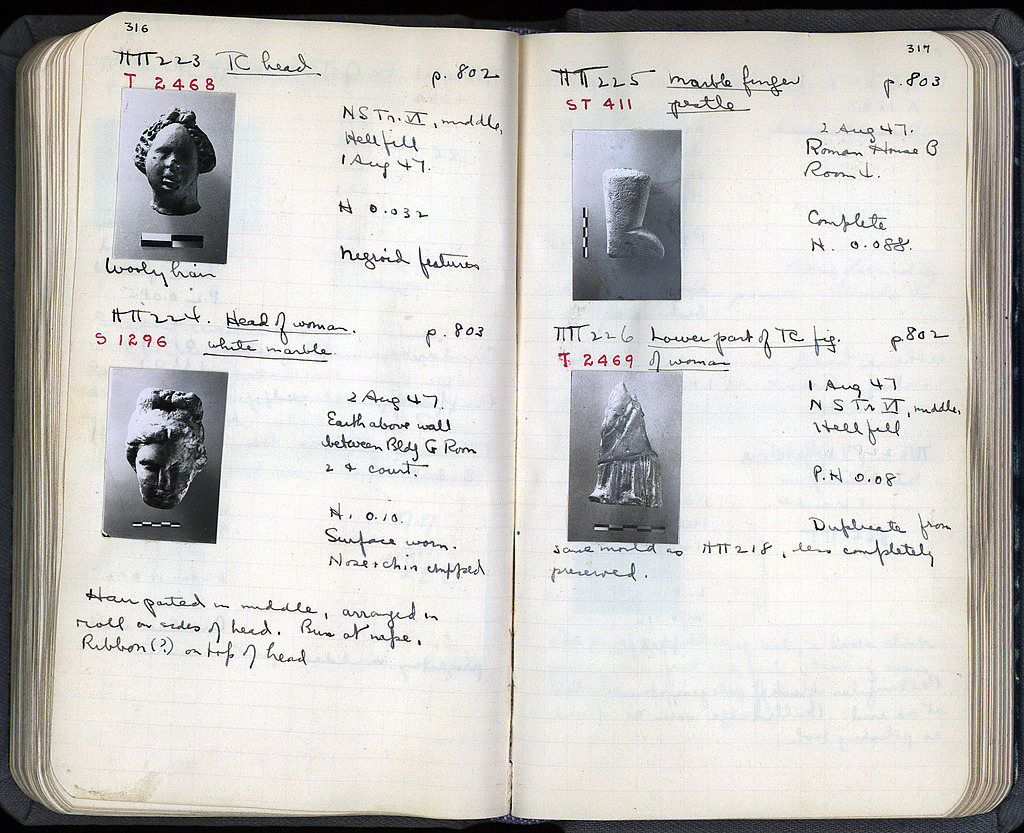 316
ΠΠ 223 TC head p. 802
T 2468
N S Tr. VI, middle,
Hell fill
1 Aug 47.
H 0.032
Negroid features
Wooly hair
ΠΠ 224. Head of woman. p. 803
S 1296 white marble
2 Aug 47.
Earth above wall
between Bldg G Room
2 & court.
H. 0.10.
Surface worn.
Nose & chin chipped
Hair parted in middle, arranged in
roll on sides of head. Bun at nape.
Ribbon (?) on top of head
317
ΠΠ 225 marble finger p. 803
ST 411 pestle
2 Aug 47.
Roman House B
Room 4.
Complete
H. 0.088.
ΠΠ 226 Lower part of TC fig. p 802
T 2469 of woman
1 Aug 47
N S Tr VI, middle,
Hell fill
P.H 0.08
Duplicate from
same mold as ΠΠ 218, less completely
preserved.